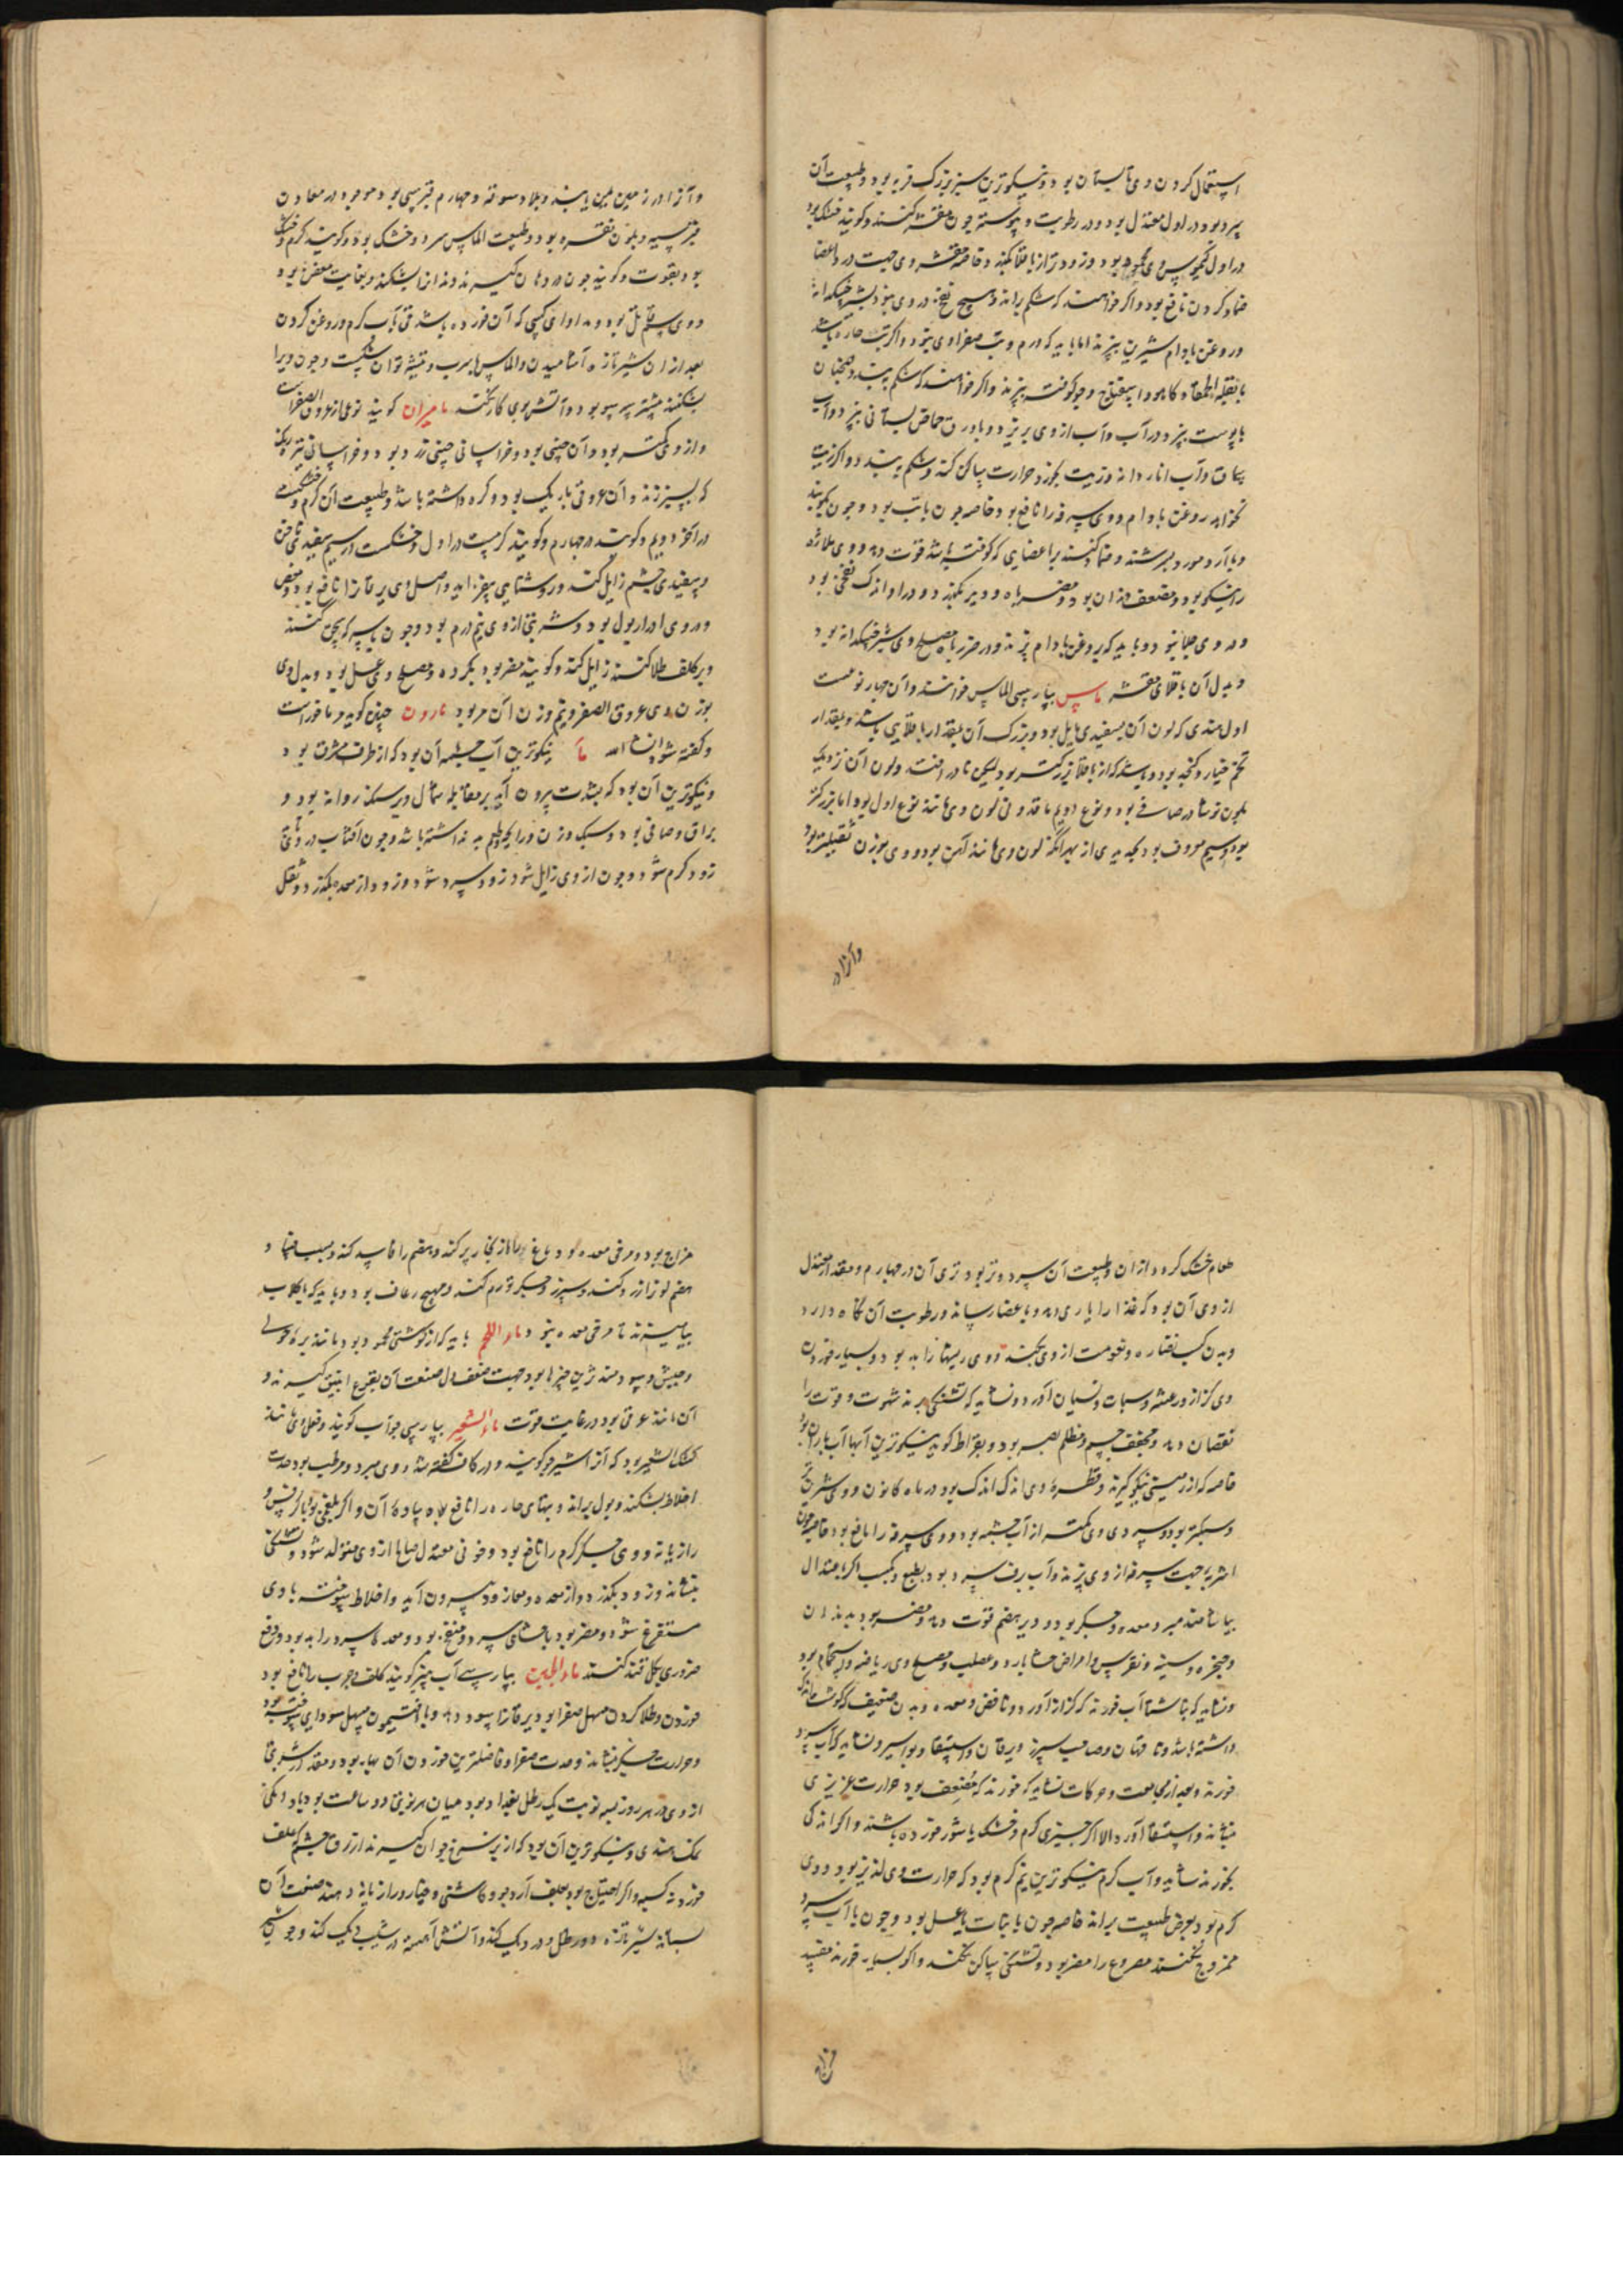 استعمال کردن وی تابستان بود و نیکوترین سبز بزرگ فربه بود و طبیعت آن
سرد بود در اول معتدل بود در رطوبت و یبوست چون مقشر کنند و گویند خشک بود
در اول کیموس وی محمود بود و زودتر از باقلا بگذرد خاصه مقشر وی جهت درد اعضا
ضماد کردن نافع بود و اگر خواهند که شکم براند و هیچ نفخ در وی نبود بشیر خسکدانه
و روغن بادام شیرین بپزند اما باید که ورم و تب صفراوی نبود و اگر تب حاره باشد
با بقلة الحمقا و کاهو و اسفناج و جو کوفته بپزند و اگر خواهند که شکم ببندد همچنان
با پوست بپزد در آب و آب از وی بریزد و با ورق حماض بستانی بپزد و آب
سماق و آب انار دانه و زیت بخورد حرارت ساکن کند و شکم ببندد و اگر زیت
نخواهد روغن بادام و وی سرفه را نافع بود خاصه چون با تب بود و چون بکوبند
و با آرد مورد بسرشند و ضماد کنند بر اعضایی که کوفته باشد قوت دهد و وی ملازه
را نیکو بود و مضعف دندان بود و مضر باه و دیر بگذرد و در او اندک نفخی بود
و در وی جلا نبود و باید که بروغن بادام پزند و در ضرر باه مصلح وی شیر خسکدانه بود
و بدل آن باقلای مقشر ماس بپارسی الماس خوانند و آن چهار نوعست
اول هندی که لون آن بسفیدی مایل بود و بزرگ آن بمقدار باقلایی باشد و بمقدار
تخم خیار و کنجد بود و باشد که از باقلا بزرگتر بود لیکن نادر افتد و لون آن نزدیک
بلون نوشادر صافی بود و نوع دویم ماقدونی لون وی مانند نوع اول بود اما بزرگتر
بود و سیم معروف بود بحدیدی از بهر آنکه لون وی مانند آهن بود و وی بوزن ثقیلتر بود
وآنرا در
و آنرا در زمین یمن یابند و بلاد سوقه و چهارم قبرسی بود موجود در معادن
قبرسیه و بلون نقره بود و طبیعت الماس سرد و خشک بود و گویند گرم و خشک
بود بقوت و گویند چون در دهان گیرند دندانرا بشکند و بغایت مضر بود
و وی سم قاتل بود و مداوای کسی که آن خورده باشد قی بآب گرم و روغن کردن
بعد از آن شیر تازه آشامیدن و الماس باسرب و تیشه توان شکست و چون ویرا
بشکنند مثلث پهلو بود و آتش بوی کار نکند مامیران گویند نوعی از عروق الصفراست
و از وی کمتر بود و آن چینی بود و خراسانی چینی زرد بود و خراسانی تیره رنگ
که بسبزی زند و آن عروقی باریک بود و گره داشته باشد و طبیعت آن گرم و خشکست
در آخر دویم و گویند در چهارم و گویند گرمست در اول و خشکست در سیم سفیدی ناخن
و سفیدی چشم زایل کند و روشنایی بیفزاید و اصل وی یرقانرا نافع بود و مغص
و در وی ادرار بول بود و شربتی از وی نیم درم بود و چون با سرکه سحق کنند
و بر کلف طلا کنند زایل کند و گویند مضر بود بگرده و مصلح وی عسل بود و بدل وی
بوزن وی عروق الصفر و نیم وزن آن مر بود مارون چیقن گویند و ما خوراست
و گفته شود ان شاء الله ما نیکوترین آب چشمه آن بود که از طرف مشرق بود
و نیکوترین آن بود که بشدت بیرون آید بر مقابله شمال و بر سنگ روانه بود و
براق و صافی بود و سبک وزن و رایحه و طعم بد نداشته باشد و چون آفتاب در وی تابد
زود گرم شود و چون از وی زایل شود زود سرد شود و زود از معده بگذرد و ثقل
طعام خشک کردد از آن و طبیعت آن سرد و تر بود تری آن در چهارم و مقدار معتدل
از وی آن بود که غذا را یاری دهد و باعضا رساند و رطوبت آن نگاه دارد
و بدن کسب نضاره و نعومت از وی بکنند و وی ریشها را بد بود و بسیار خوردن
وی کزاز و رعشه و سبات و نسیان آورد و نشاید که تشنگی برند شهوت و قوت را
نقصان دهد و مجفف جسم و مظلم بصر بود و بقراط گوید نیکوترین آبها آب باران بود
خاصه که از زمینی نیکو گیرند و قطره وی اندک اندک بود در ماه کانون و وی شیرین
و سبکتر بود و سردی وی کمتر از آب چشمه بود و وی سرفه را نافع بود خاصه چون
اشربه جهت سرفه از وی پزند و آب برف سرد بود بطبع و کسب اگر باعتدال
بیاشامند مبرد معده و جگر بود و دیر هضم قوت دهد و مضر بود بدندان
و حنجره و سینه و نقرس و امراض حشا بارد و عصب و مصلح وی ریاضه و استحمام بود
و نشاید که بناشتا آب خورند که کزاز آورد و نافض و معده و بدن ضعیف که گوشت اندک
داشته باشد و ناقهان و صاحب سپرز و یرقان و استسقا و بواسیر و نشاید که آب سرد
خورند و بعد از مجامعت و حرکات نشاید که خورند که مضعف بود حرارت غریزی
بنشاند و استسقا آورد الا اگر چیزی گرم و خشک یا شور خورده باشند و اگر اندکی
بخورند شاید و آب گرم نیکوترین نیم گرم بود که حرارت وی لذیذ بود و وی
گرم بود بعرض طبیعت براند خاصه چون با نبات یا عسل بود و چون با آب سرد
ممزوج نکنند مصروع را مضر بود و تشنگی ساکن نکند و اگر بسیار خورند مفسد
مزاج
مزاج بود و مرخی معده بود و دماغ را از بخار پر کند و هضم را فاسد کند و سبب
هضم لون را زرد کند و سپرز و جگر تورم کند و مهیج رعاف بود و باید که با گلاب
بیامیزند تا مرخی معده نبود ماء اللحم باید که از گوشتی محمود بود مانند بره حولی
و جیش و سودمندترین چیزها بود جهت ضعف دل صنعت آن بقرع انبیق گیرند و
آن مانند عرقی بود در غایت قوت ماء الشعیر بپارسی جوآب گویند و فعل وی مانند
کشک الشعیر بود که آنرا شیر جو گویند و در کاف گفته شد و وی مبرد و مرطب بود حدت
اخلاط بشکند و بول براند و تبهای حاره را نافع بود ساده آن و اگر بلغمی بود با کرفس و
رازیانه و وی جگر گرم را نافع بود و خونی معتدل صالح از وی متولد شود و تشنگی
بنشاند و زود بگذرد و از معده و معا زود بیرون آید و اخلاط سوخته با وی
مستفرغ شود و مضر بود باحشای سرد و منفخ بود و معده سرد را بد بود و دفع
ضرر وی بگلقند کنند ماء الجبن بپارسی آب پنیر گویند کلف و جرب را نافع بود
خوردن و طلا کردن مسهل صفرا بود یرقانرا سود دهد و با افتیمون مسهل سودای سوخته بود
و حرارت جگر بنشاند و حدت صفرا و فاضلترین خوردن آن بهار بود و مقدار شربتی
از وی در هر روز بسه نوبت یک رطل بغداد بود میان هر نوبتی دو ساعت بود با دانگی
نمک هندی و نیکوترین آن بود که از بز سرخ جوان گیرند ازرق چشم که علف
خورد و اگر احتیاج بود بعلف آرد جو و کاسنی و خیار و رازیانه دهند صنعت آن
بستانند شیر تازه دو رطل و در دیگ کند و آتش آهسته در شیب دیگ کند و چون